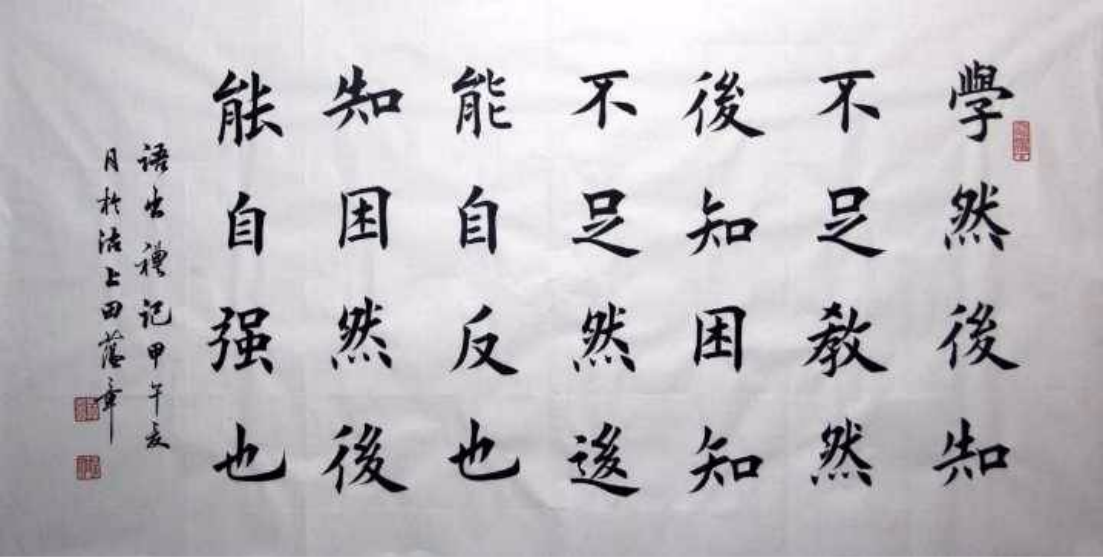 學然後知
不足教然
後知困知
不足然後
能自反也
知困然後
能自强也
语出禮记甲午夏
月於沽上田蕴章